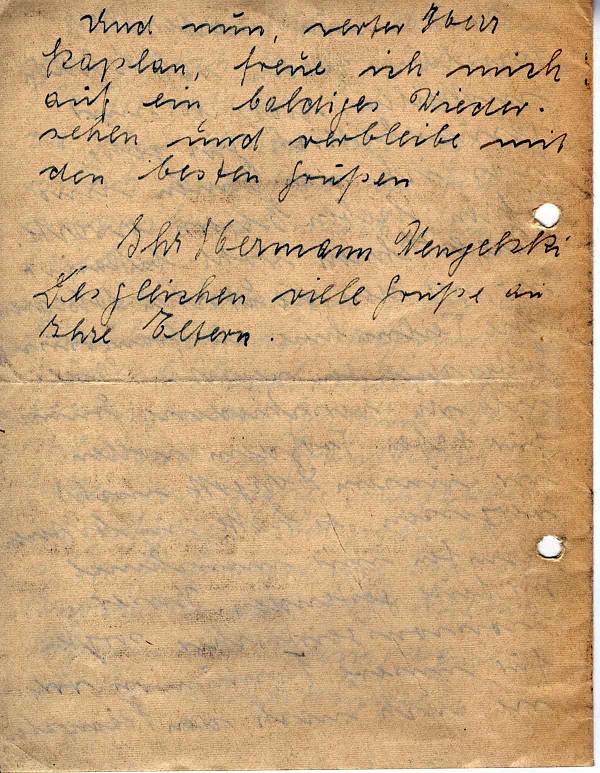 Und nun, werter Herr
Kaplan, freue ich mich
auf ein baldiges Wieder-
sehen und verbleibe mit
den besten Grüßen
Ihr Hermann Wengelski
Desgleichen viele Grüße an
Ihre Eltern.